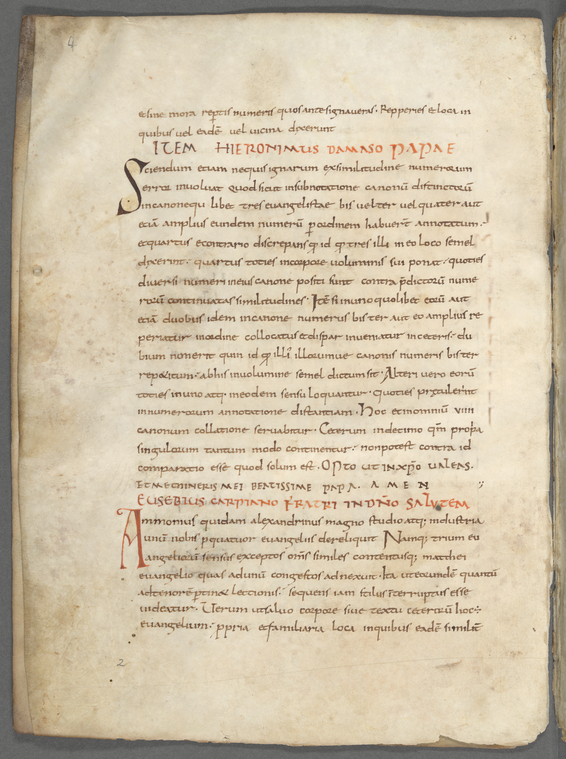 4
et sine mora reptis numeris quos ante signaveras · Repperies et loca in
quibus vel eadē vel vicina dixerunt
ITEM HIERONIMUS DAMASO PAPAE
Sciendum etiam nequis ignarum ex similitudine numerorum
error involvat quod sicut in subnotatione canonū distinctorū
in canone qui libet tres evangelistae bis vel ter vel quater aut
etiā amplius eundem numerū p ordinem habuerit annotatum ·
et quartus e contrario discrepans qp id qp tres illi in eo loco semel
dixerint · quartus toties incorpore voluminis sui ponat · quoties
diversi numeri in eius canone positi sunt contra p̄dictorū nume
rorū continuatas similitudines · Itē si in uno quolibet eorū aut
etiā duobus idem in canone numerus bis ter aut eo amplius re
periatur in ordine collocatus et dispar inveniatur in ceteris · du
bium non erit quin id qp illi illorumve canonis numeris bis ter
repetitum · ab his in volumine semel dictum sit · Alteri vero eorū
toties in uno atq; in eodem sensu loquantur · Quoties ptulerint
in numerorum annotatione distantiam · Hoc et in omniū viiii
canonum collatione servabitur · Ceterum in decimo qm̄ propa
singulorum tantum modo continentur · non potest contra id
comparatio esse quod solum est · OPTO UT IN XPŌ VALEAS ·
ET MEMINERIS MEI BEATISSIME PAPA · AMEN
EUSEBIUS CARPIANO FRATRI IN DŃO SALUTEM
Ammonius quidam alexandrinus magno studio atq; industria
unū nobis p quatuor evangeliis dereliquit Namq; trium ev
angeliorū sensus exceptos om̄s similes contentosq; matthei
evangelio quasi ad unū congestos adnexuit · Ita ut eorundē quantū
ad tenorē ptinet lectionis · sequens iam stilus interruptus esse
videatur · Verum ut salvo corpore sive textu ceterorū hoc
evangelium · ppria et familiaria loca in quibus eadē similit̄
2